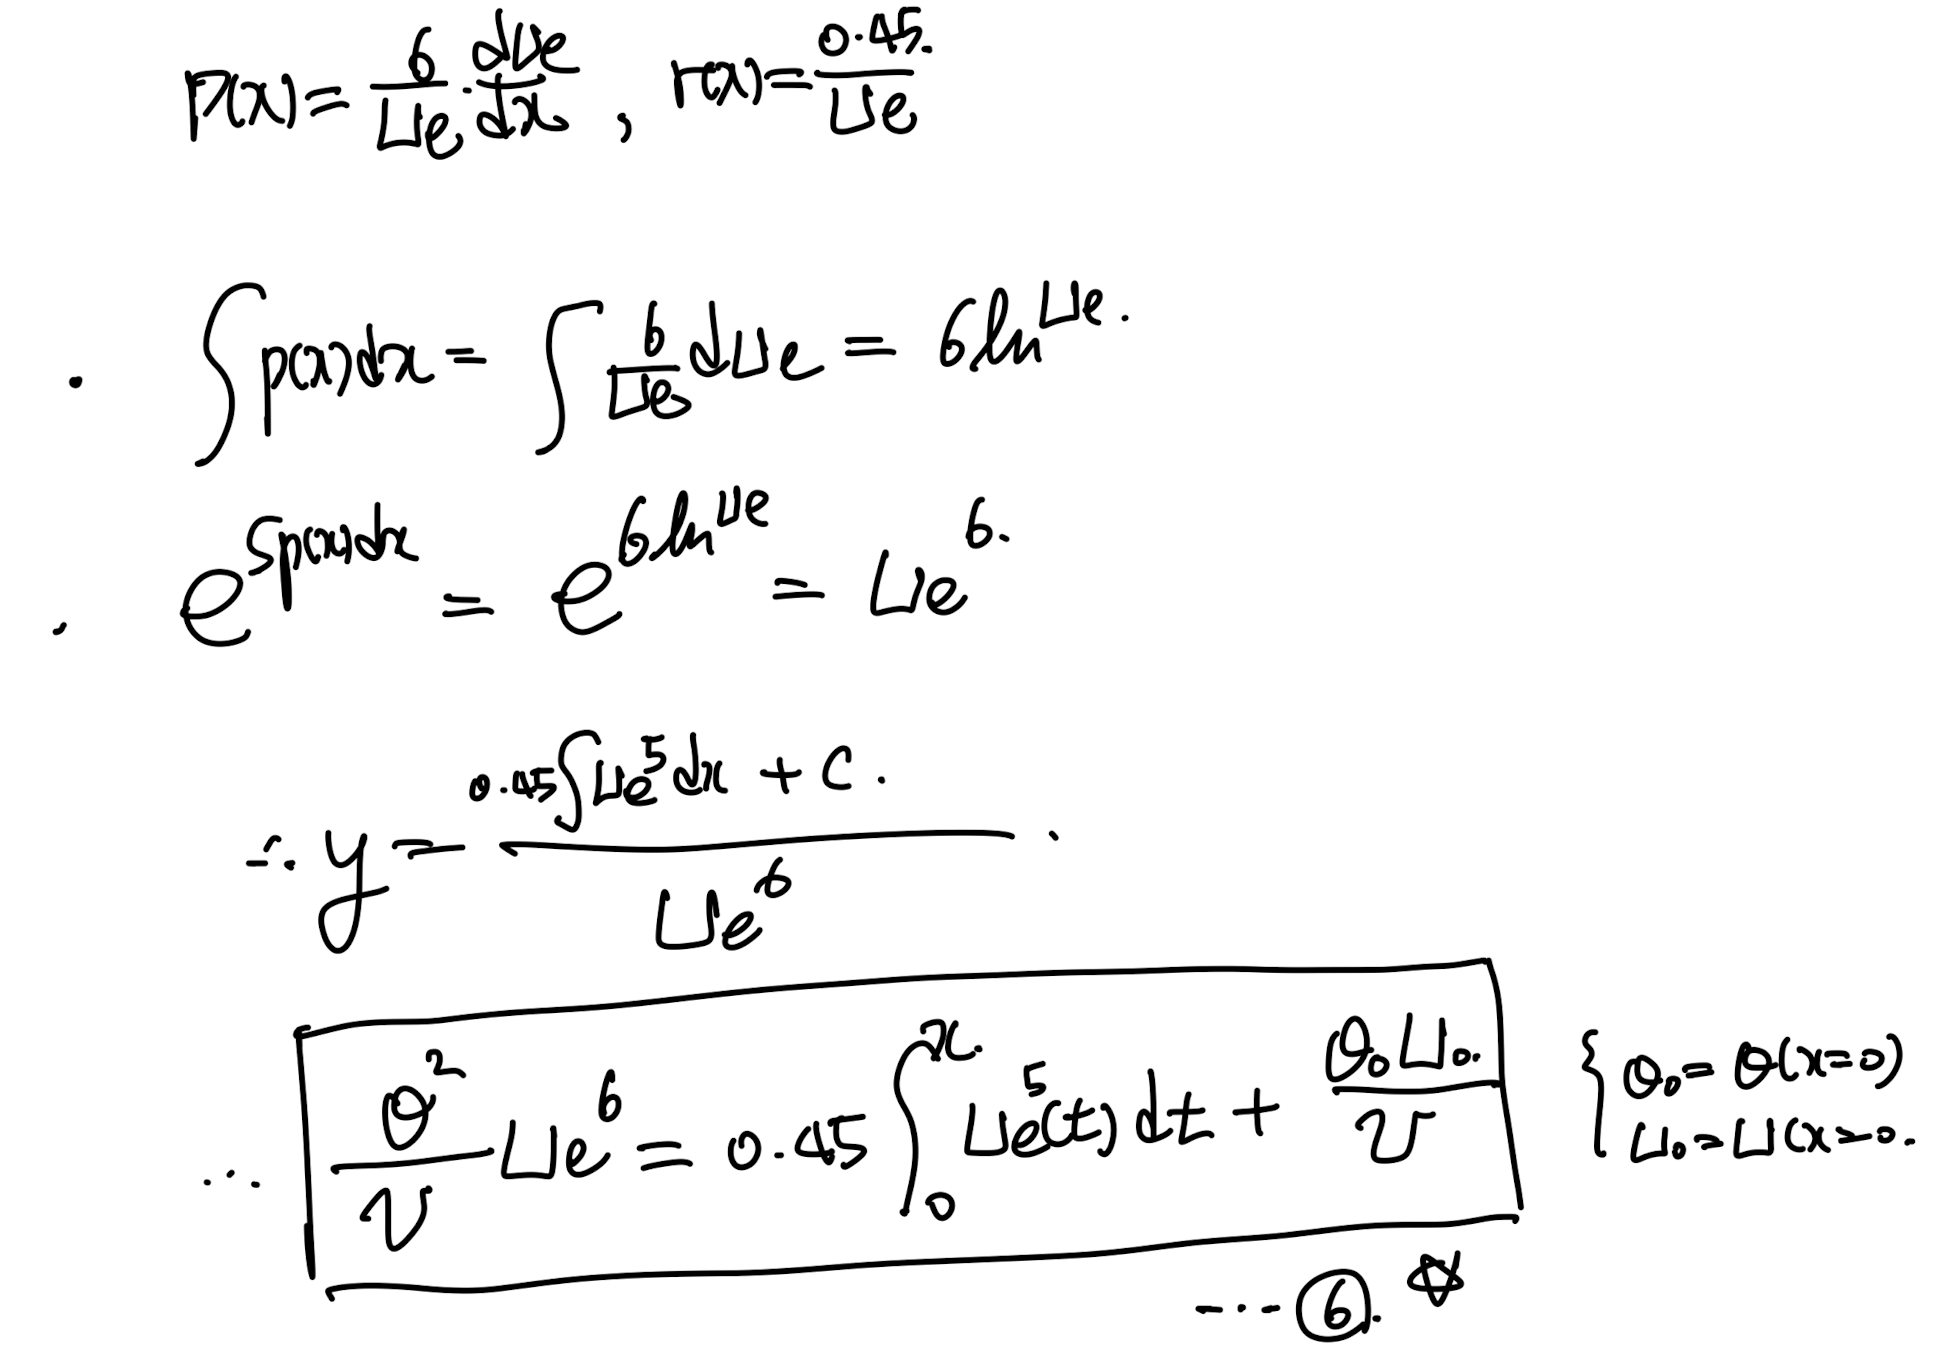 P(x) = 6/Ue · dUe/dx , r(x) = 0.45/Ue
· ∫p(x)dx = ∫ 6/Ue dUe = 6ln^Ue.
· e^∫p(x)dx = e^6ln^Ue = Ue^6.
∴ y = (0.45∫Ue^5dx + C.)/Ue^6 .
... θ^2/ν Ue^6 = 0.45 ∫_0^x. Ue^5(t) dt + θ₀U₀./ν { θ₀ = θ(x=0)
U₀ = U(x=0.
--- ⑥. ☆